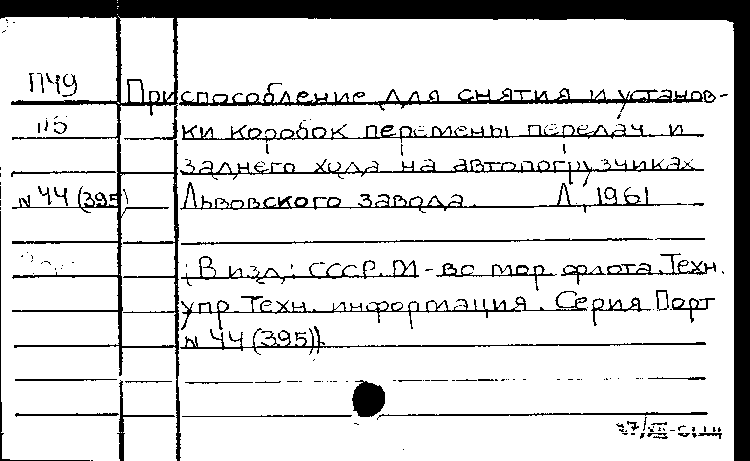 ПЧ9 Приспособление для снятия и установ-
115 ки коробок перемены передач и
заднего хода на автопогрузчиках
№ 44 (395) Львовского завода. Л, 1961
(В изд.: СССР. М-во мор. флота. Техн.
упр. Техн. информация. Серия Порт
№ 44 (395))